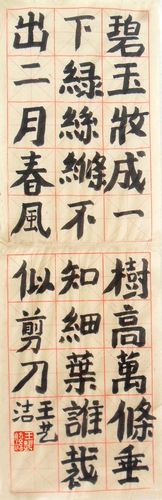 碧玉妝成一樹高萬條垂
下緑絲縧不知細葉誰裁
出二月春風似剪刀
王艺
洁